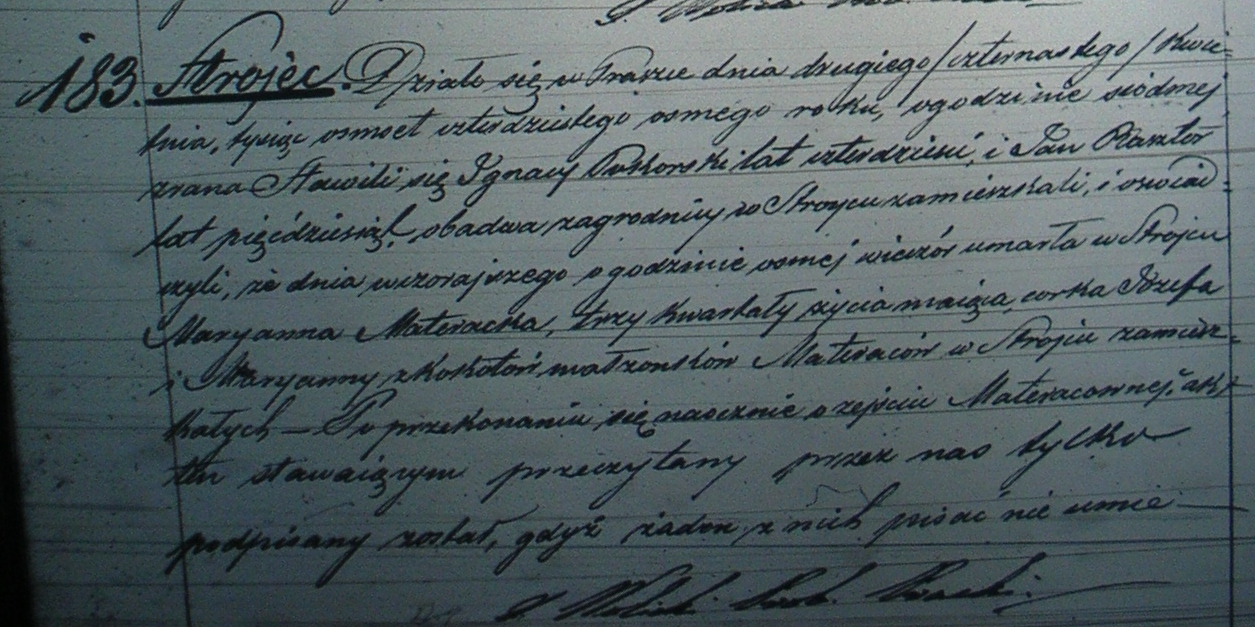 183. Stroiec. Działo się w Praszce dnia drugiego /czternastego/ Kwie-
tnia, tysiąc osmset czterdziestego osmego roku, o godzinie siódmej
zrana Stawili się Ignacy Pokorski lat czterdzieści, i Jan Kasztor
lat pięćdziesiąt, obadwa zagrodnicy w Stroycu zamieszkali, i oswiad-
czyli, że dnia wczorajszego o godzinie osmej wieczór umarła w Strojcu
Maryanna Materacka, trzy kwartały życia maiąca, corka Józefa
i Maryanny z Kokotów małżonków Materaców w Strojcu zamiesz-
kałych — Po przekonaniu się naocznie o zejściu Materacownej, akt
ten stawaiącym przeczytany przez nas tylko
podpisany został, gdyż żaden z nich pisać nie umie